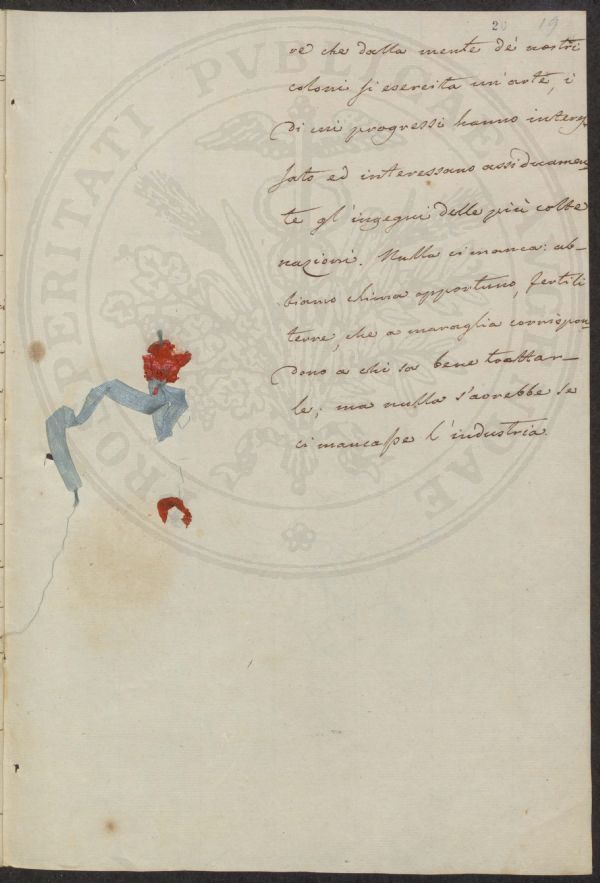 20 19
re che dalla mente de' nostri
coloni si esercita un'arte, i
di cui progressi hanno interes
sato ed interessano assiduamen
te gl'ingegni delle più colte
nazioni. Nulla ci manca: ab-
biamo clima opportuno, fertili
terre, che a maraglia corrispon
dono a chi sa bene trattar-
le; ma nulla s'avrebbe se
ci mancasse l'industria.
PROSPERITATI PVBLICAE AVGENDAE